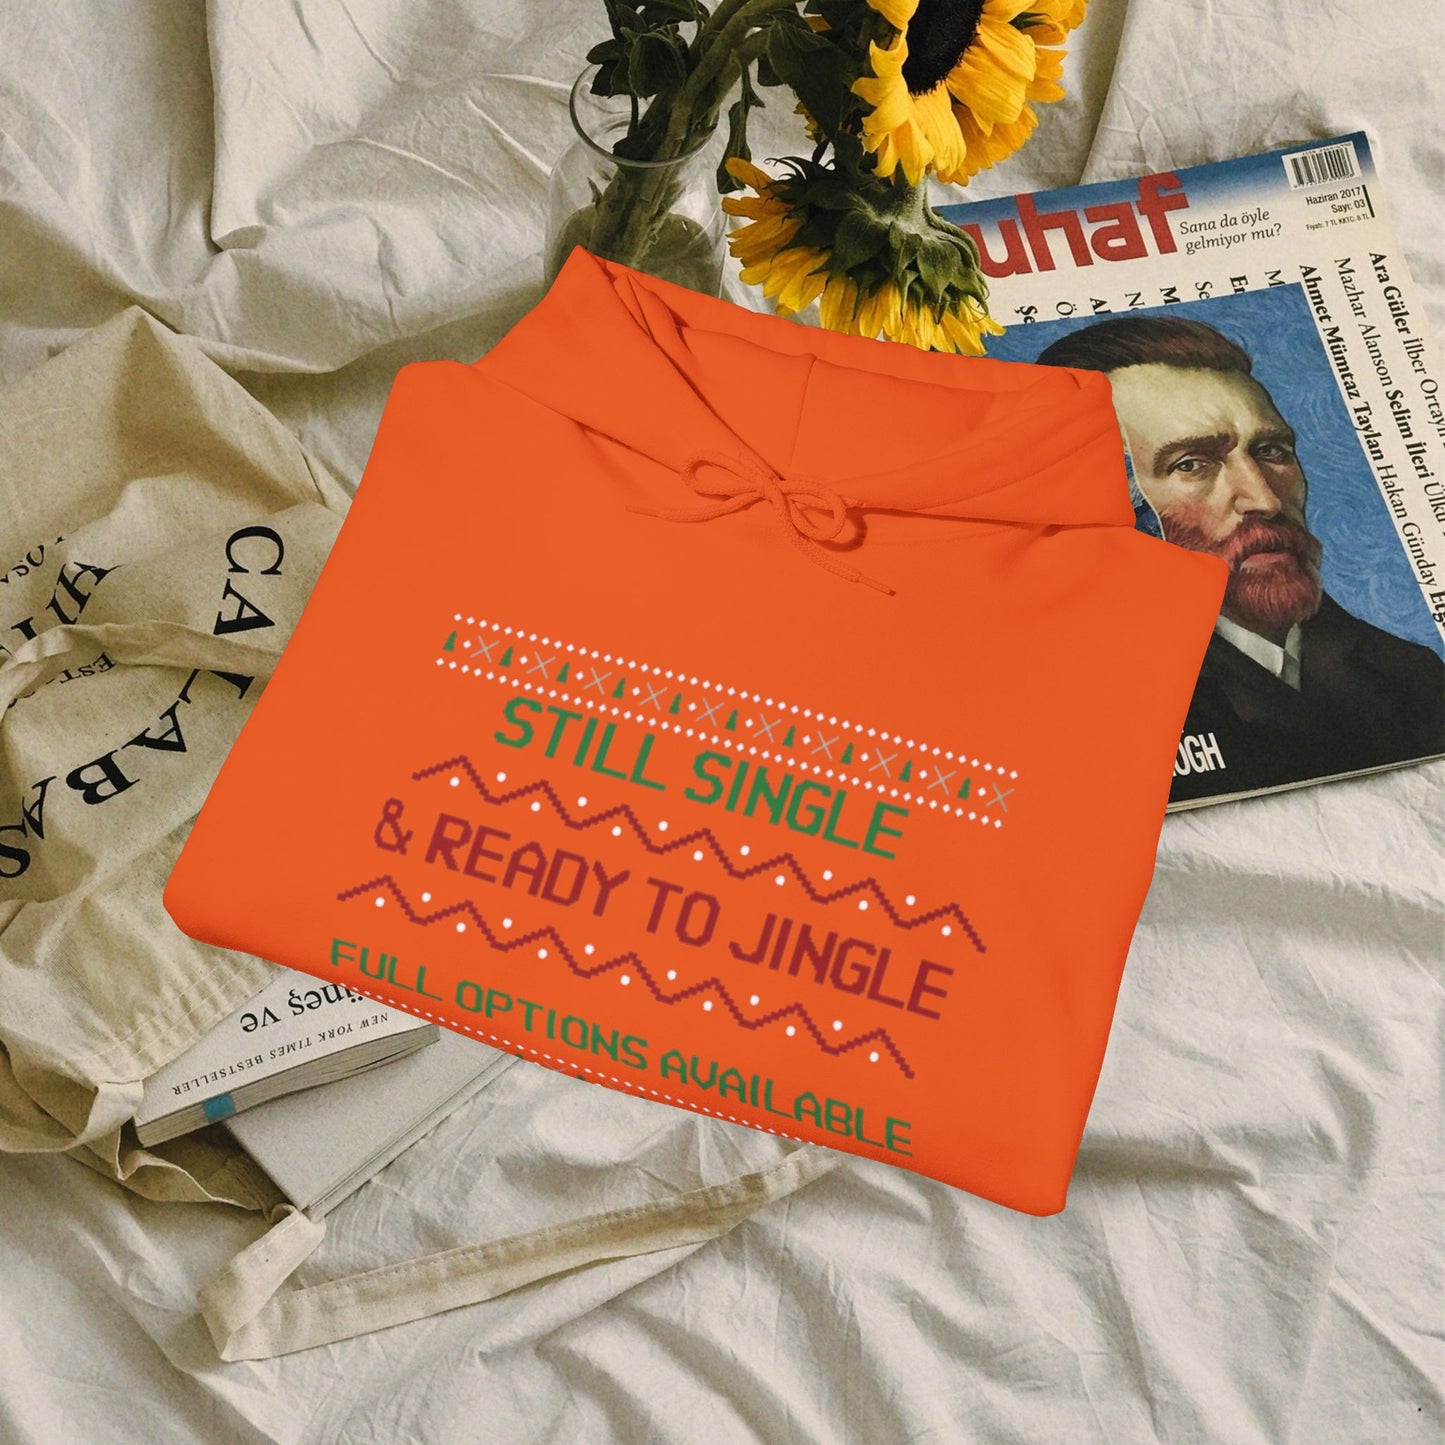 uhaf
Sana da öyle
gelmiyor mu?
Haziran 2017
Sayı: 03
Fiyatı: 7 TL KKTC: 8 TL
Ara Güler İlber Ortaylı
Mazhar Alanson Selim İleri Ülkü
Ahmet Mümtaz Taylan Hakan Günday
OGH
CALABAS
EST
STILL SINGLE
& READY TO JINGLE
FULL OPTIONS AVAILABLE
üneş ve
NEW YORK TIMES BESTSELLER